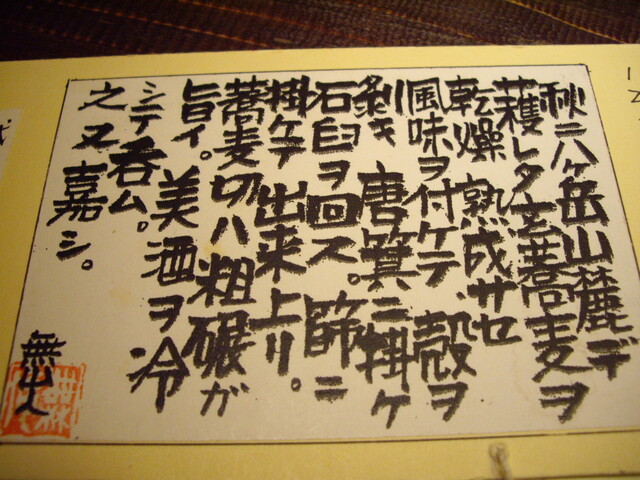 秋ニ八ヶ岳山麓デ
穫レタ玄蕎麦ヲ
乾燥熟成サセ
風味ヲ付ケテ、殻ヲ
剝キ 唐箕ニ掛ケ
石臼ヲ回ス。篩ニ
掛ケテ出来上リ。
蕎麦切ハ粗碾ガ
旨イ。美酒ヲ冷
シテ呑ム。
之又嘉シ。